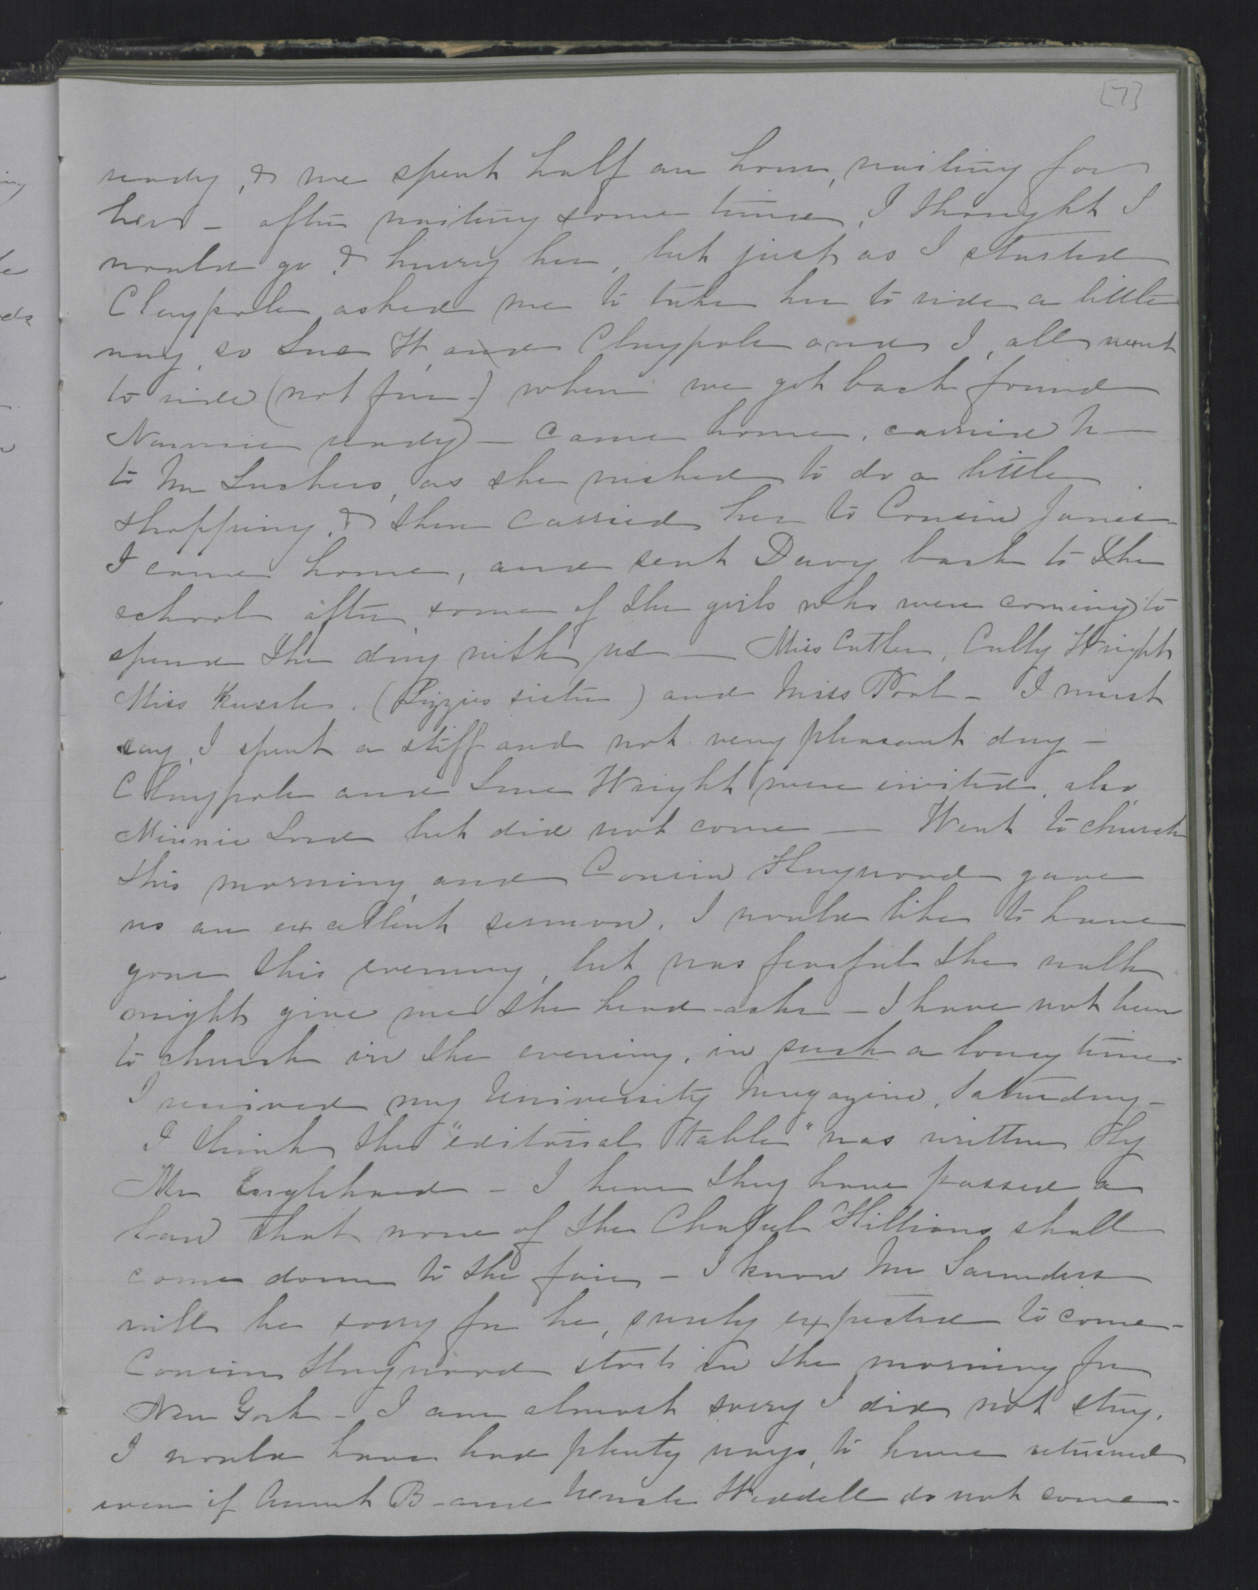 [7]
ready, & we spent half an hour, waiting for
her - after waiting some time, I thought I
would go & hurry her, but just as I started
Claypole asked me to take her to ride a little
way, so Sue H, and Claypole and I, all went
to ride (not far -) when we got back found
Nannie ready - came home, carried N -
to Mr Luchers, as she wished to do a little
shopping, & then carried her to Cousin Janes -
I came home, and sent Davy back to the
school after some of the girls who were coming to
spend the day with us - Miss Cutler, Cully Wright
Miss (Lizzies sister) and Miss Pool - I must
say, I spent a stiff and not very pleasant day -
Claypole and Sue Wright were invited, also
Minnie Lord but did not come - Went to church
this morning, and Cousin Haywood gave
us an excellent sermon, I would like to have
gone this evening, but was fearful the walk
might give me the head-ache - I have not been
to church in the evening, in such a long time -
I received my University Magazine, Saturday -
I think the "editorial table" was written by
Mr Englehard - I hear they have passed a
law that none of the Chapel Hillians shall
come down to the fair - I know Mr Saunders
will be sorry for he, surely expected to come -
Cousin Haywood starts in the morning for
New York - I am almost sorry I did not stay,
I would have had plenty ways, to have returned
even if Aunt B - and Uncle Weddell do not come -